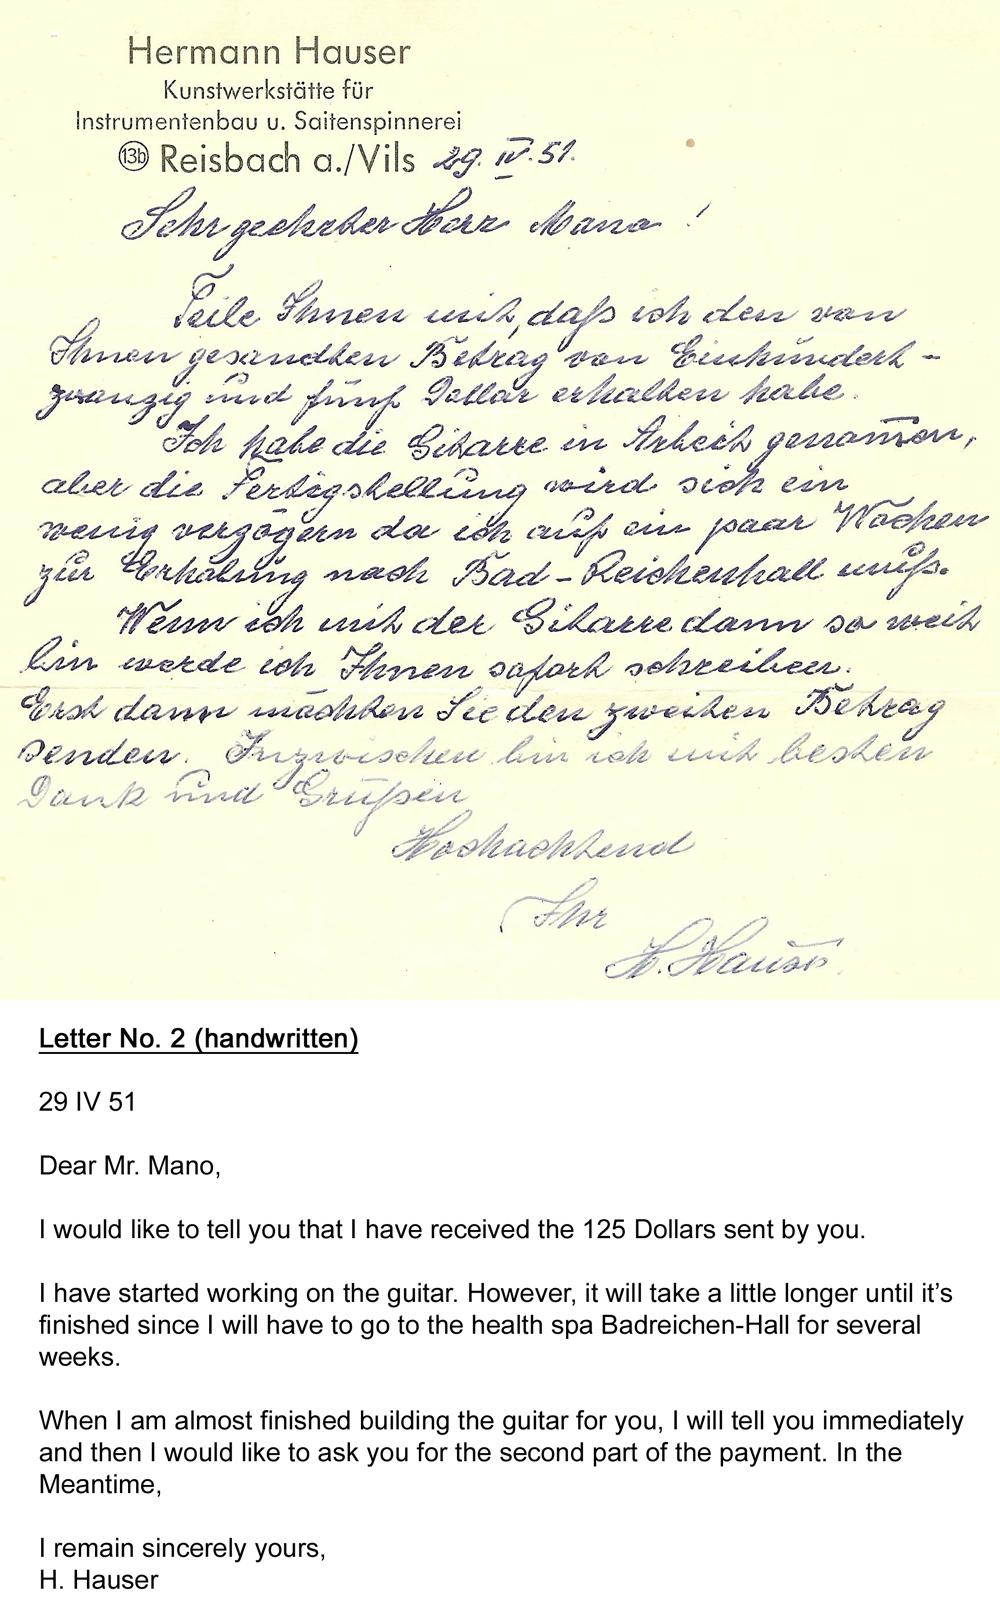 Hermann Hauser
Kunstwerkstätte für
Instrumentenbau u. Saitenspinnerei
13b Reisbach a./Vils 29. IV. 51.
Sehr geehrter Herr Mano !
Teile Ihnen mit, daß ich den von
Ihnen gesandten Betrag von Einhundert-
zwanzig und fünf Dollar erhalten habe.
Ich habe die Gitarre in Arbeit genom̅en,
aber die Fertigstellung wird sich ein
wenig verzögern da ich auf ein paar Wochen
zur Erholung nach Bad-Reichenhall muß.
Wenn ich mit der Gitarre dann so weit
bin werde ich Ihnen sofort schreiben.
Erst dann möchten Sie den zweiten Betrag
senden. Inzwischen bin ich mit besten
Dank und Grüßen
Hochachtend
Ihr
H. Hauser
Letter No. 2 (handwritten)
29 IV 51
Dear Mr. Mano,
I would like to tell you that I have received the 125 Dollars sent by you.
I have started working on the guitar. However, it will take a little longer until it’s
finished since I will have to go to the health spa Badreichen-Hall for several
weeks.
When I am almost finished building the guitar for you, I will tell you immediately
and then I would like to ask you for the second part of the payment. In the
Meantime,
I remain sincerely yours,
H. Hauser